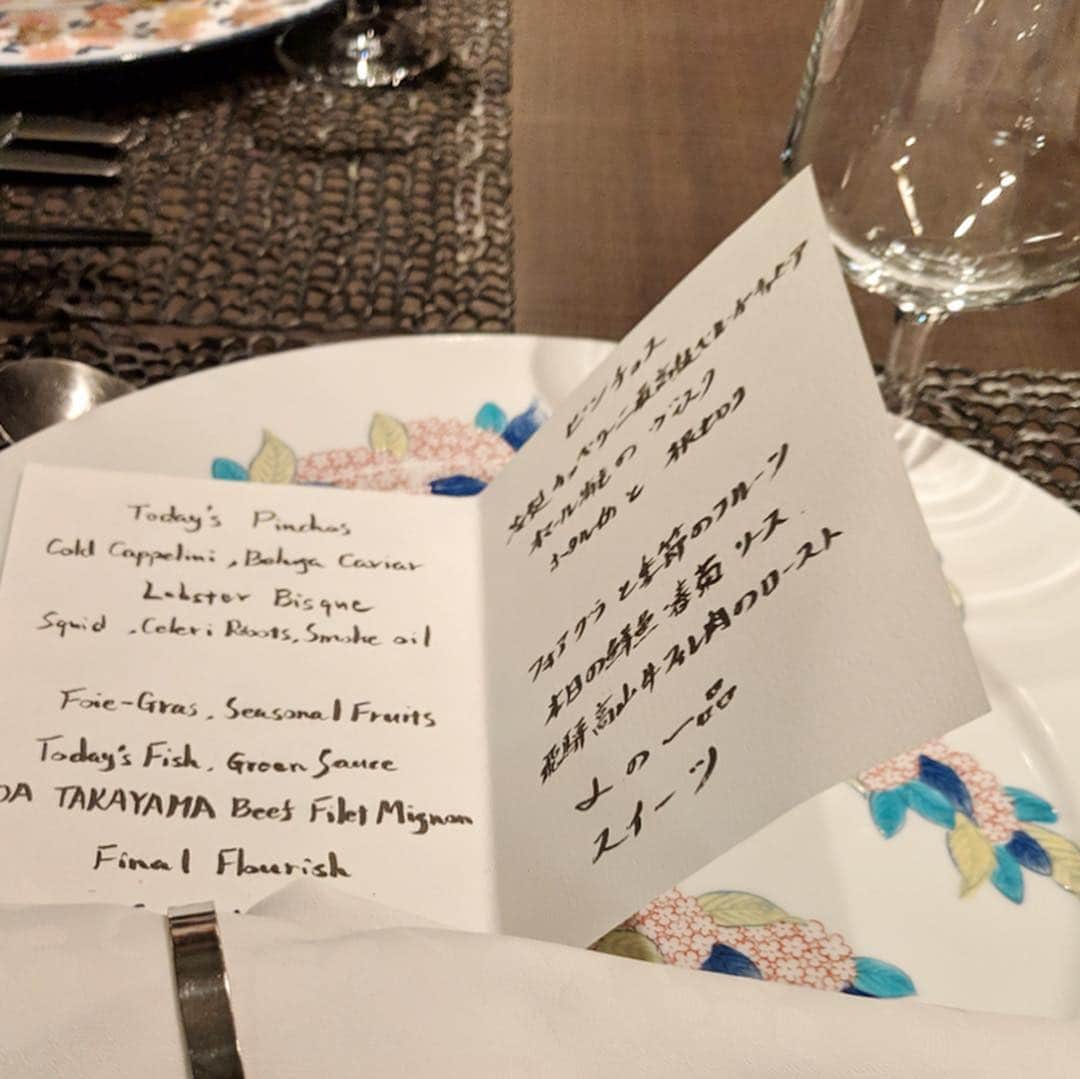 Today's Pinchos
Cold Cappelini , Beluga Caviar
Lobster Bisque
Squid , Celeri Roots, Smoke oil
Foie-Gras , Seasonal Fruits
Today's Fish, Green Sauce
DA TAKAYAMA Beef Filet Mignon
Final Flourish
ピンチョス
冷製カッペリーニ最高級ベルーガキャビア
オマール海老のビスク
と 根セロリ
フォアグラと季節のフルーツ
本日の鮮魚 春菊ソース
飛騨高山牛ヒレ肉のロースト
〆の一品
スイーツ